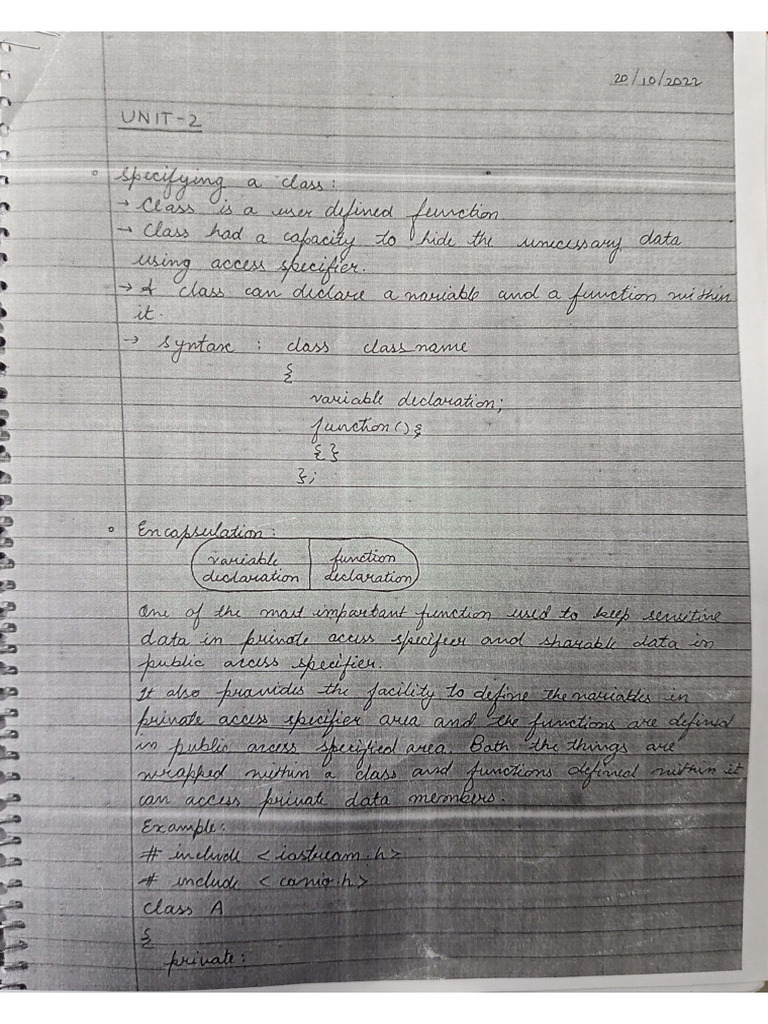 20/10/2022
UNIT-2
specifying a class:
→ Class is a user defined function
→ Class had a capacity to hide the unecessary data
using access specifier.
→ A class can declare a variable and a function within
it.
→ syntax : class class name
{
variable declaration;
function()
{ }
};
Encapsulation:
variable function
declaration declaration
One of the most important function used to keep sensitive
data in private access specifier and sharable data in
public access specifier.
It also provides the facility to define the variables in
private access specifier area and the functions are defined
in public access specified area. Both the things are
wrapped within a class and functions defined within it
can access private data members.
Example:
# include <iostream.h>
# include <conio.h>
class A
{
private: